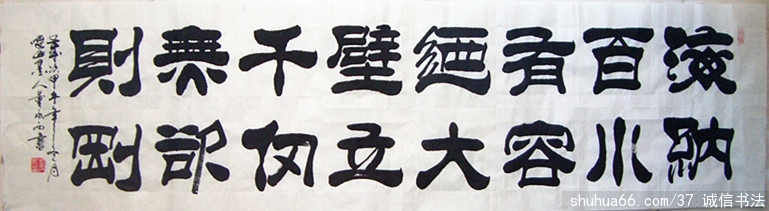 海納
百川
有容
迺大
壁立
千仞
無欲
則剛
shuhua66.com/37 诚信书法